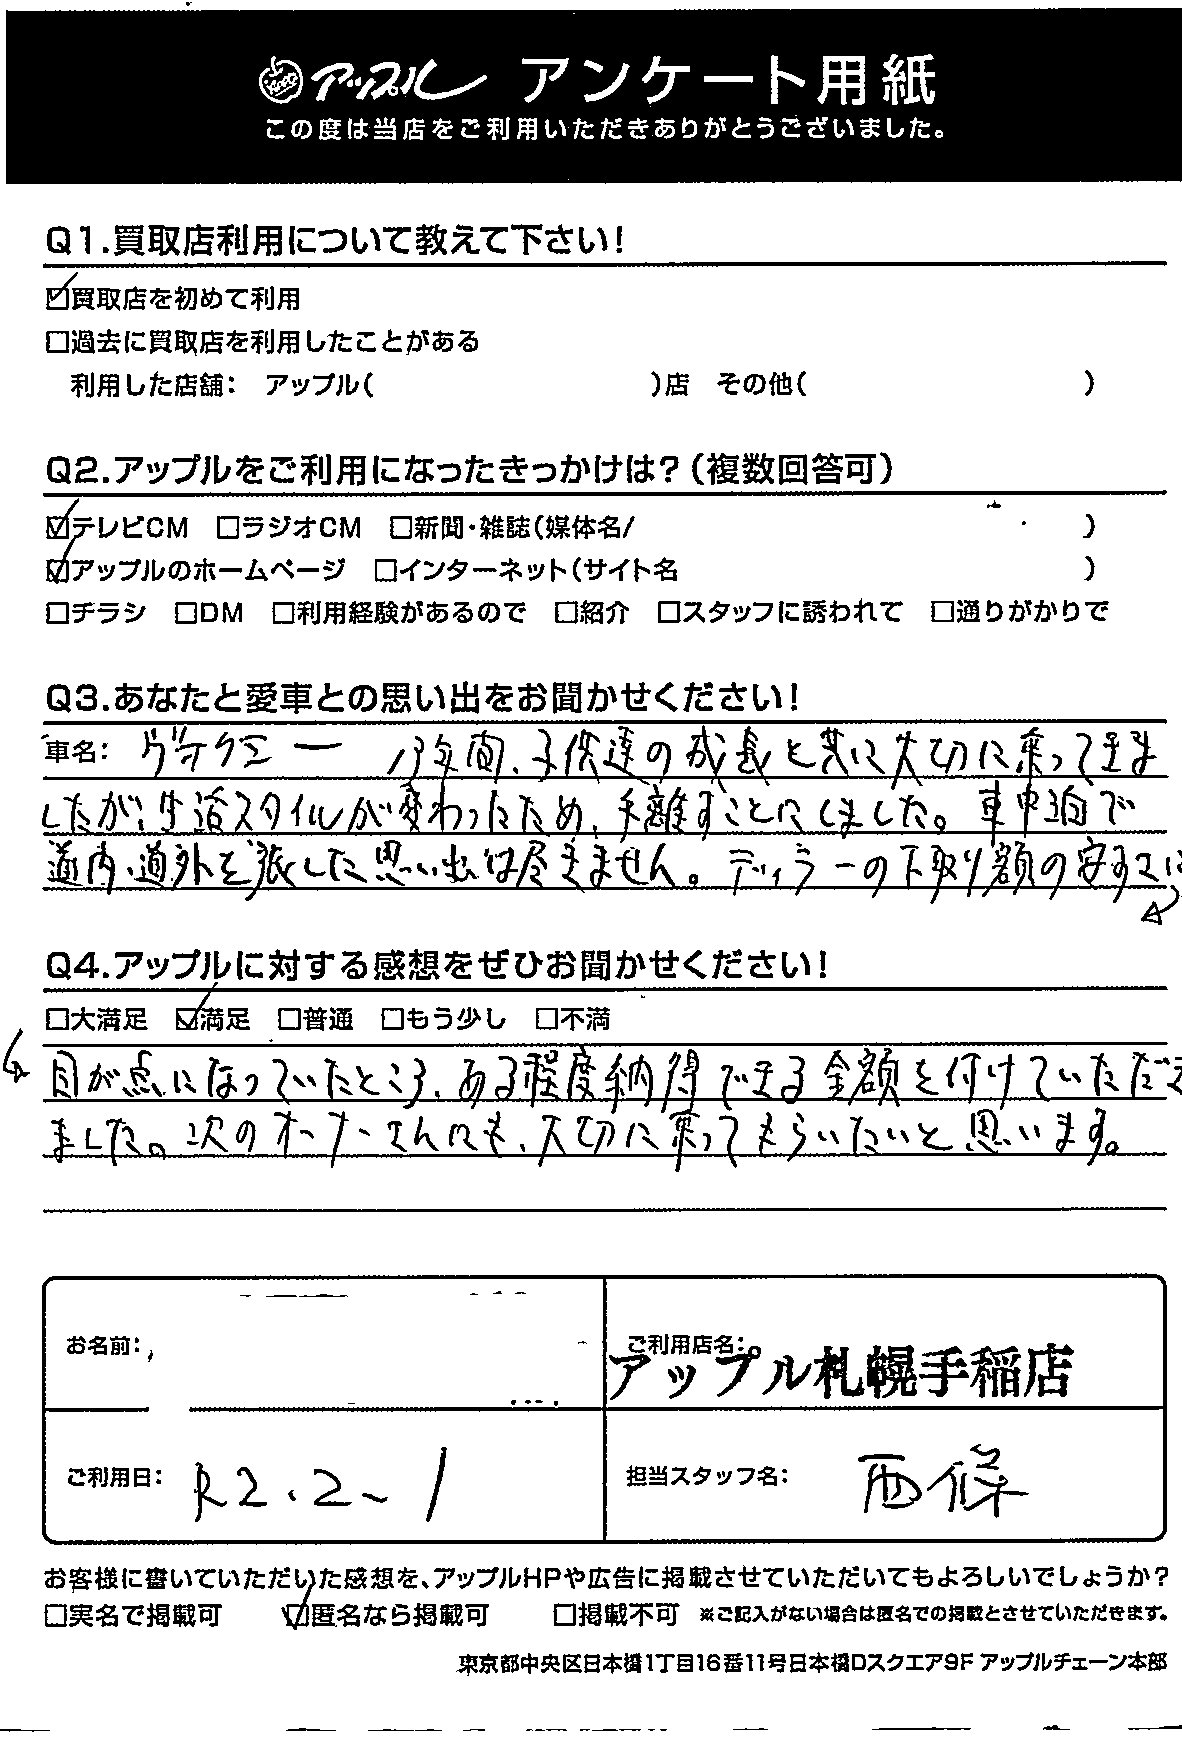 アップル アンケート用紙
この度は当店をご利用いただきありがとうございました。
Q1.買取店利用について教えて下さい!
☑買取店を初めて利用
□過去に買取店を利用したことがある
利用した店舗: アップル( )店 その他( )
Q2.アップルをご利用になったきっかけは?(複数回答可)
☑テレビCM □ラジオCM □新聞・雑誌(媒体名/ )
☑アップルのホームページ □インターネット(サイト名 )
□チラシ □DM □利用経験があるので □紹介 □スタッフに誘われて □通りがかりで
Q3.あなたと愛車との思い出をお聞かせください!
車名: ヴォクシー 13年間、子供達の成長と共に大切に乗ってきま
したが、生活スタイルが変わったため、手離すことにしました。車中泊で
道内、道外を旅した思い出は尽きません。ディラーの下取り額の安すさに
Q4.アップルに対する感想をぜひお聞かせください!
□大満足 ☑満足 □普通 □もう少し □不満
目が点になっていたところ、ある程度納得できる金額を付けていただき
ました。次のオーナーさんにも、大切に乗ってもらいたいと思います。
お名前:
ご利用店名:
アップル札幌手稲店
ご利用日: R2.2.1
担当スタッフ名: 西條
お客様に書いていただいた感想を、アップルHPや広告に掲載させていただいてもよろしいでしょうか?
□実名で掲載可 ☑匿名なら掲載可 □掲載不可 ※ご記入がない場合は匿名での掲載とさせていただきます。
東京都中央区日本橋1丁目16番11号日本橋Dスクエア9F アップルチェーン本部